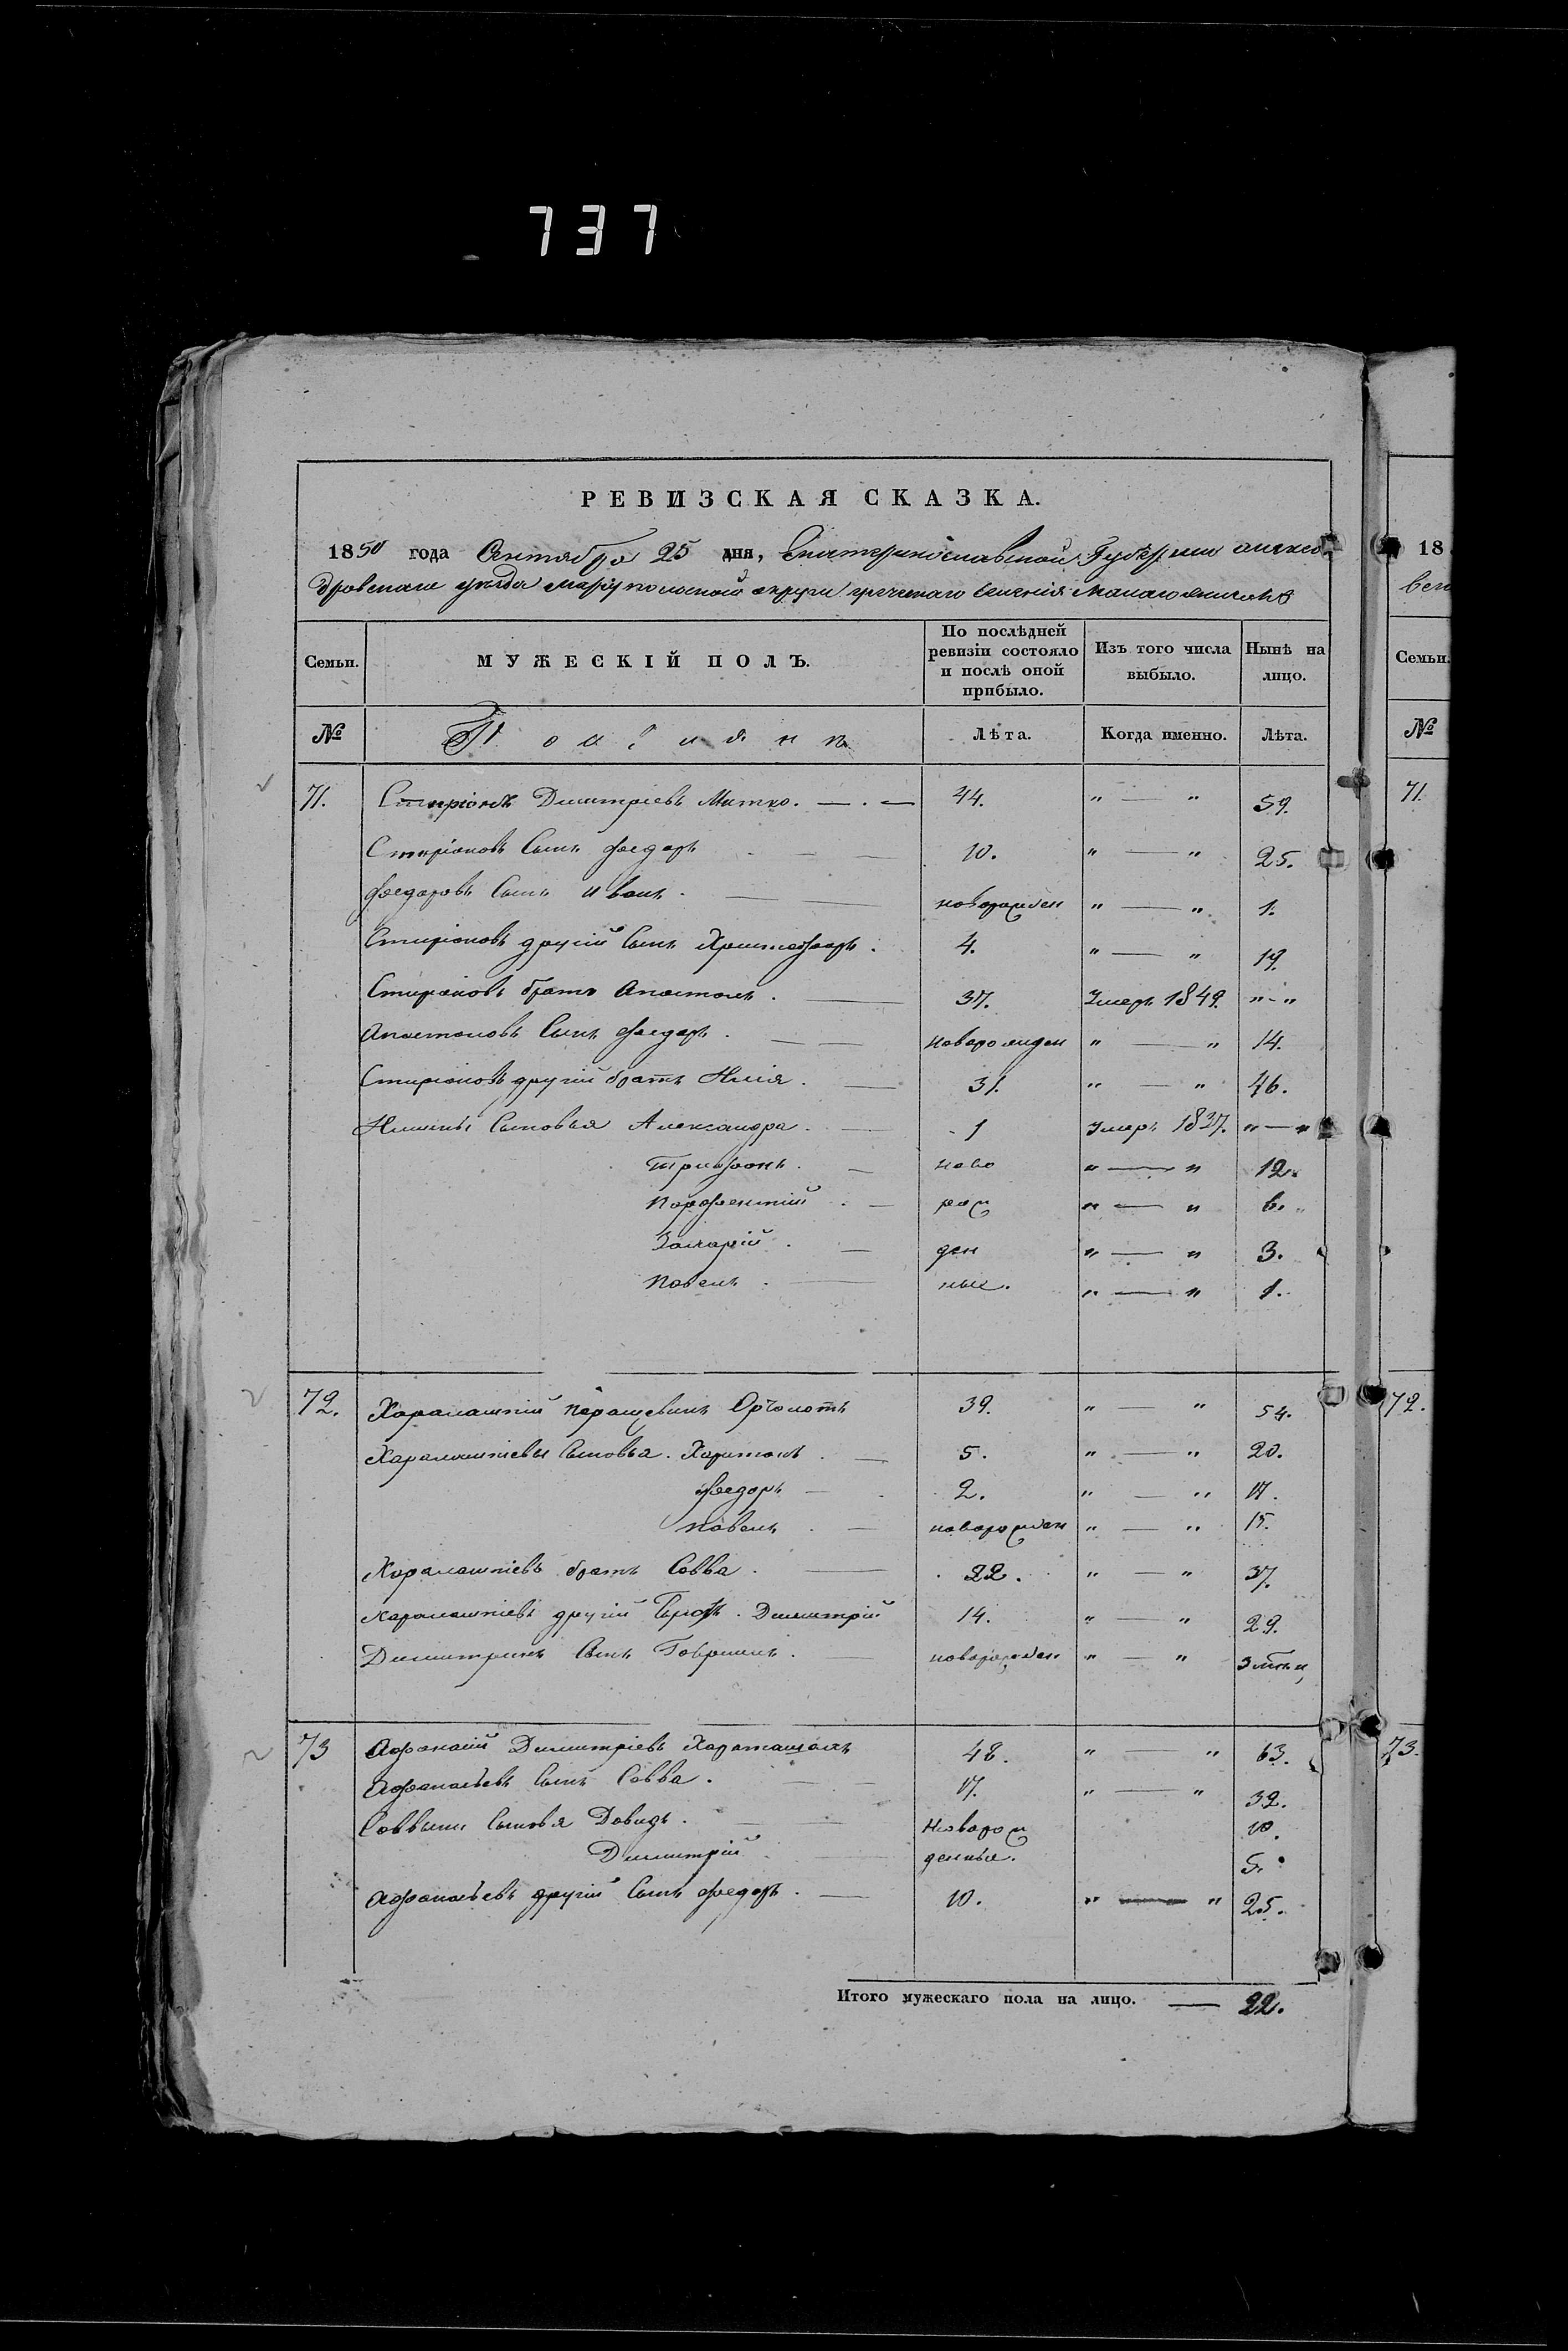 737
РЕВИЗСКАЯ СКАЗКА.
1850 года Сентября 25 дня, Екатеринославской Губернии алексан
дровскаго уезда мариупольской округи греческаго селения
Семьи. МУЖЕСКІЙ ПОЛЪ. По послѣдней ревизіи состояло и послѣ оной прибыло. Изъ того числа выбыло. Нынѣ на лицо.
№ Лѣта. Когда именно. Лѣта.
71. Стиріонъ Димитріевъ Матко. 44. " — " 59.
Стиріоновъ Сынъ Федоръ 10. " — " 25.
Федоровъ Сынъ Иванъ. новорожден " — " 1.
Стиріоновъ другій Сынъ Христофоръ. 4. " — " 19.
Стиріоновъ братъ Апостолъ. 37. Умеръ 1849. " - "
Апостоловъ Сынъ Федоръ. новорожден " — " 14.
Стиріоновъ другій братъ Илія. 31. " — " 46.
Илиины Сыновья Александра. 1 Умеръ 1837. " — "
Трифонъ. ново " — " 12.
рож " — " 6.
Захарій. ден " — " 3.
Павелъ. ные. " — " 1.
72. Харалампій 39. " — " 54.
Харалампіевы Сыновья. Харитонъ. 5. " — " 20.
Федоръ 2. " — " 17.
Павелъ. новорожден " — " 15.
Харалампіевъ братъ Савва. 22. " — " 37.
Харалампіевъ другій братъ. Димитрій 14. " — " 29.
Димитріевъ Сынъ Гавріилъ. новорожден " — "
73 Афанасій Димитріевъ 48. " — " 63.
Афанасьевъ Сынъ Савва. 17. " — " 32.
Саввины Сыновья Давидъ. Новорож 10.
Димитрій денные. 5.
Афанасьевъ другій Сынъ Федоръ. 10. " — " 25.
Итого мужескаго пола на лицо. — 22.
18
Семьи.
№
71.
72.
73.